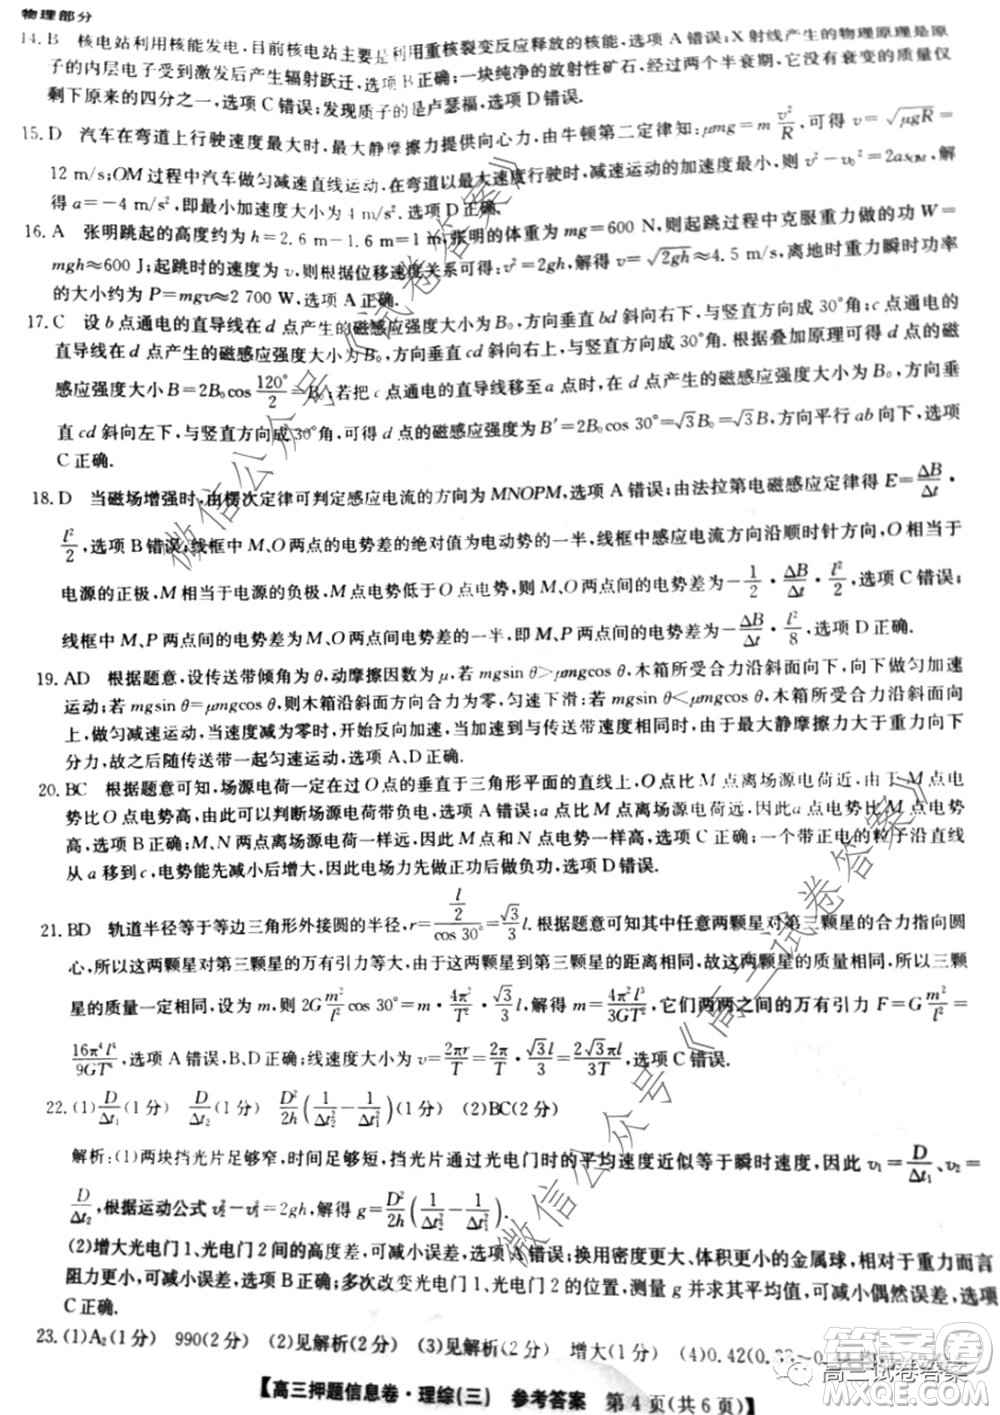 物理部分
14. B 核电站利用核能发电,目前核电站主要是利用重核裂变反应释放的核能,选项 A 错误;X 射线产生的物理原理是原
子的内层电子受到激发后产生辐射跃迁,选项 B 正确;一块纯净的放射性矿石,经过两个半衰期,它没有衰变的质量仅
剩下原来的四分之一,选项 C 错误;发现质子的是卢瑟福,选项 D 错误.
15. D 汽车在弯道上行驶速度最大时,最大静摩擦力提供向心力,由牛顿第二定律知:μmg=m v²/R,可得 v=√μgR=
12 m/s;OM 过程中汽车做匀减速直线运动,在弯道以最大速度行驶时,匀减速运动的加速度最小,则 v²-v₀²=2as_OM,解
得 a=-4 m/s²,即最小加速度大小为 4 m/s²,选项 D 正确.
16. A 张明跳起的高度约为 h=2.6 m-1.6 m=1 m,张明的体重为 mg=600 N,则起跳过程中克服重力做的功 W=
mgh≈600 J;起跳时的速度为 v,则根据位移速度关系可得:v²=2gh,解得 v=√2gh≈4.5 m/s,离地时重力瞬时功率
的大小约为 P=mgv≈2 700 W,选项 A 正确.
17. C 设 b 点通电的直导线在 d 点产生的磁感应强度大小为 B₀,方向垂直 bd 斜向右下,与竖直方向成 30°角;c 点通电的
直导线在 d 点产生的磁感应强度大小为 B₀,方向垂直 cd 斜向右上,与竖直方向成 30°角.根据叠加原理可得 d 点的磁
感应强度大小 B=2B₀cos 120°/2=B₀;若把 c 点通电的直导线移至 a 点时,在 d 点产生的磁感应强度大小为 B₀,方向垂
直 cd 斜向左下,与竖直方向成 30°角,可得 d 点的磁感应强度大小为 B′=2B₀cos 30°=√3B₀=√3B,方向平行 ab 向下,选项
C 正确.
18. D 当磁场增强时,由楞次定律可判定感应电流的方向为 MNOPM,选项 A 错误;由法拉第电磁感应定律得 E=ΔB/Δt·
l²/2,选项 B 错误;线框中 M、O 两点的电势差的绝对值为电动势的一半,线框中感应电流方向沿顺时针方向,O 相当于
电源的正极,M 相当于电源的负极,所以 M 点电势低于 O 点电势,则 M、O 两点间的电势差为-1/2·ΔB/Δt·l²/2,选项 C 错误;
线框中 M、P 两点间的电势差为 M、O 两点间电势差的一半,即 M、P 两点间的电势差为-ΔB/Δt·l²/8,选项 D 正确.
19. AD 根据题意,设传送带倾角为 θ,动摩擦因数为 μ,若 mgsin θ>μmgcos θ,木箱所受合力沿斜面向下,向下做匀加速
运动;若 mgsin θ=μmgcos θ,则木箱沿斜面方向合力为零,匀速下滑;若 mgsin θ<μmgcos θ,木箱所受合力沿斜面向
上,做匀减速运动,当速度减为零时,开始反向加速,当加速到与传送带速度相同时,由于最大静摩擦力大于重力向下的
分力,故之后随传送带一起匀速运动,选项 A、D 正确.
20. BC 根据题意可知,场源电荷一定在过 O 点的垂直于三角形平面的直线上,O 点比 M 点离场源电荷近,由于 M 点电
势比 O 点电势高,由此可以判断场源电荷带负电,选项 A 错误;a 点比 M 点离场源电荷远,因此a 点电势比 M 点电势
高,选项 B 正确;M、N 两点离场源电荷一样远,因此 M 点和 N 点电势一样高,选项 C 正确;一个带正电的粒子沿直线
从 a 移到 c,电势能先减小后增大,因此电场力先做正功后做负功,选项 D 错误.
21. BD 轨道半径等于等边三角形外接圆的半径,r=(l/2)/cos 30°=√3/3 l.根据题意可知其中任意两颗星对第三颗星的合力指向圆
心,所以这两颗星对第三颗星的万有引力等大,由于这两颗星到第三颗星的距离相同,故这两颗星的质量相同,所以三颗
星的质量一定相同,设为 m,则 2G m²/l² cos 30°=m·4π²/T²·√3/3 l,解得 m=4π²l³/3GT²,它们两两之间的万有引力 F=G m²/l²=
16π⁴l⁴/9GT⁴,选项 A 错误,B、D 正确;线速度大小为 v=2πr/T=2π/T·√3l/3=2√3πl/3T,选项 C 错误.
22. (1) D/Δt₁(1 分) D/Δt₂(1 分) D²/2h(1/Δt₂²-1/Δt₁²)(1 分) (2)BC(2 分)
解析:(1)两块挡光片足够窄,时间足够短,挡光片通过光电门的平均速度近似等于瞬时速度,因此 v₁=D/Δt₁、v₂=
D/Δt₂,根据运动公式 v₂²-v₁²=2gh,解得 g=D²/2h(1/Δt₂²-1/Δt₁²).
(2)增大光电门 1、光电门 2 间的高度差,可减小误差,选项 A 错误;换用密度更大、体积更小的金属球,相对于重力而言
阻力更小,可减小误差,选项 B 正确;多次改变光电门 1、光电门 2 的位置,测量 g 并其平均值,可减小偶然误差,选项
C 正确.
23. (1)A₂(1 分) 990(2 分) (2)见解析(2 分) (3)见解析(2 分) 增大(1 分) (4)0.42(0.
【高三押题信息卷·理综(三) 参考答案 第 4 页(共 6 页)】
微信公众号《试卷答案》
微信公众号《高三试卷答案》
答案圈
高三试卷答案